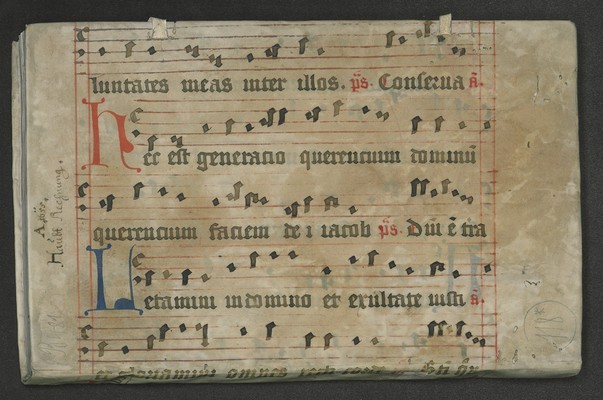 luntates meas inter illos. ps. Conserua a.
Hec est generacio querencium dominū
querencium faciem dei iacob ps. Dñi ē tra
Letamini in domino et exultate iusti a.
omnes
Haubt Rechnung.